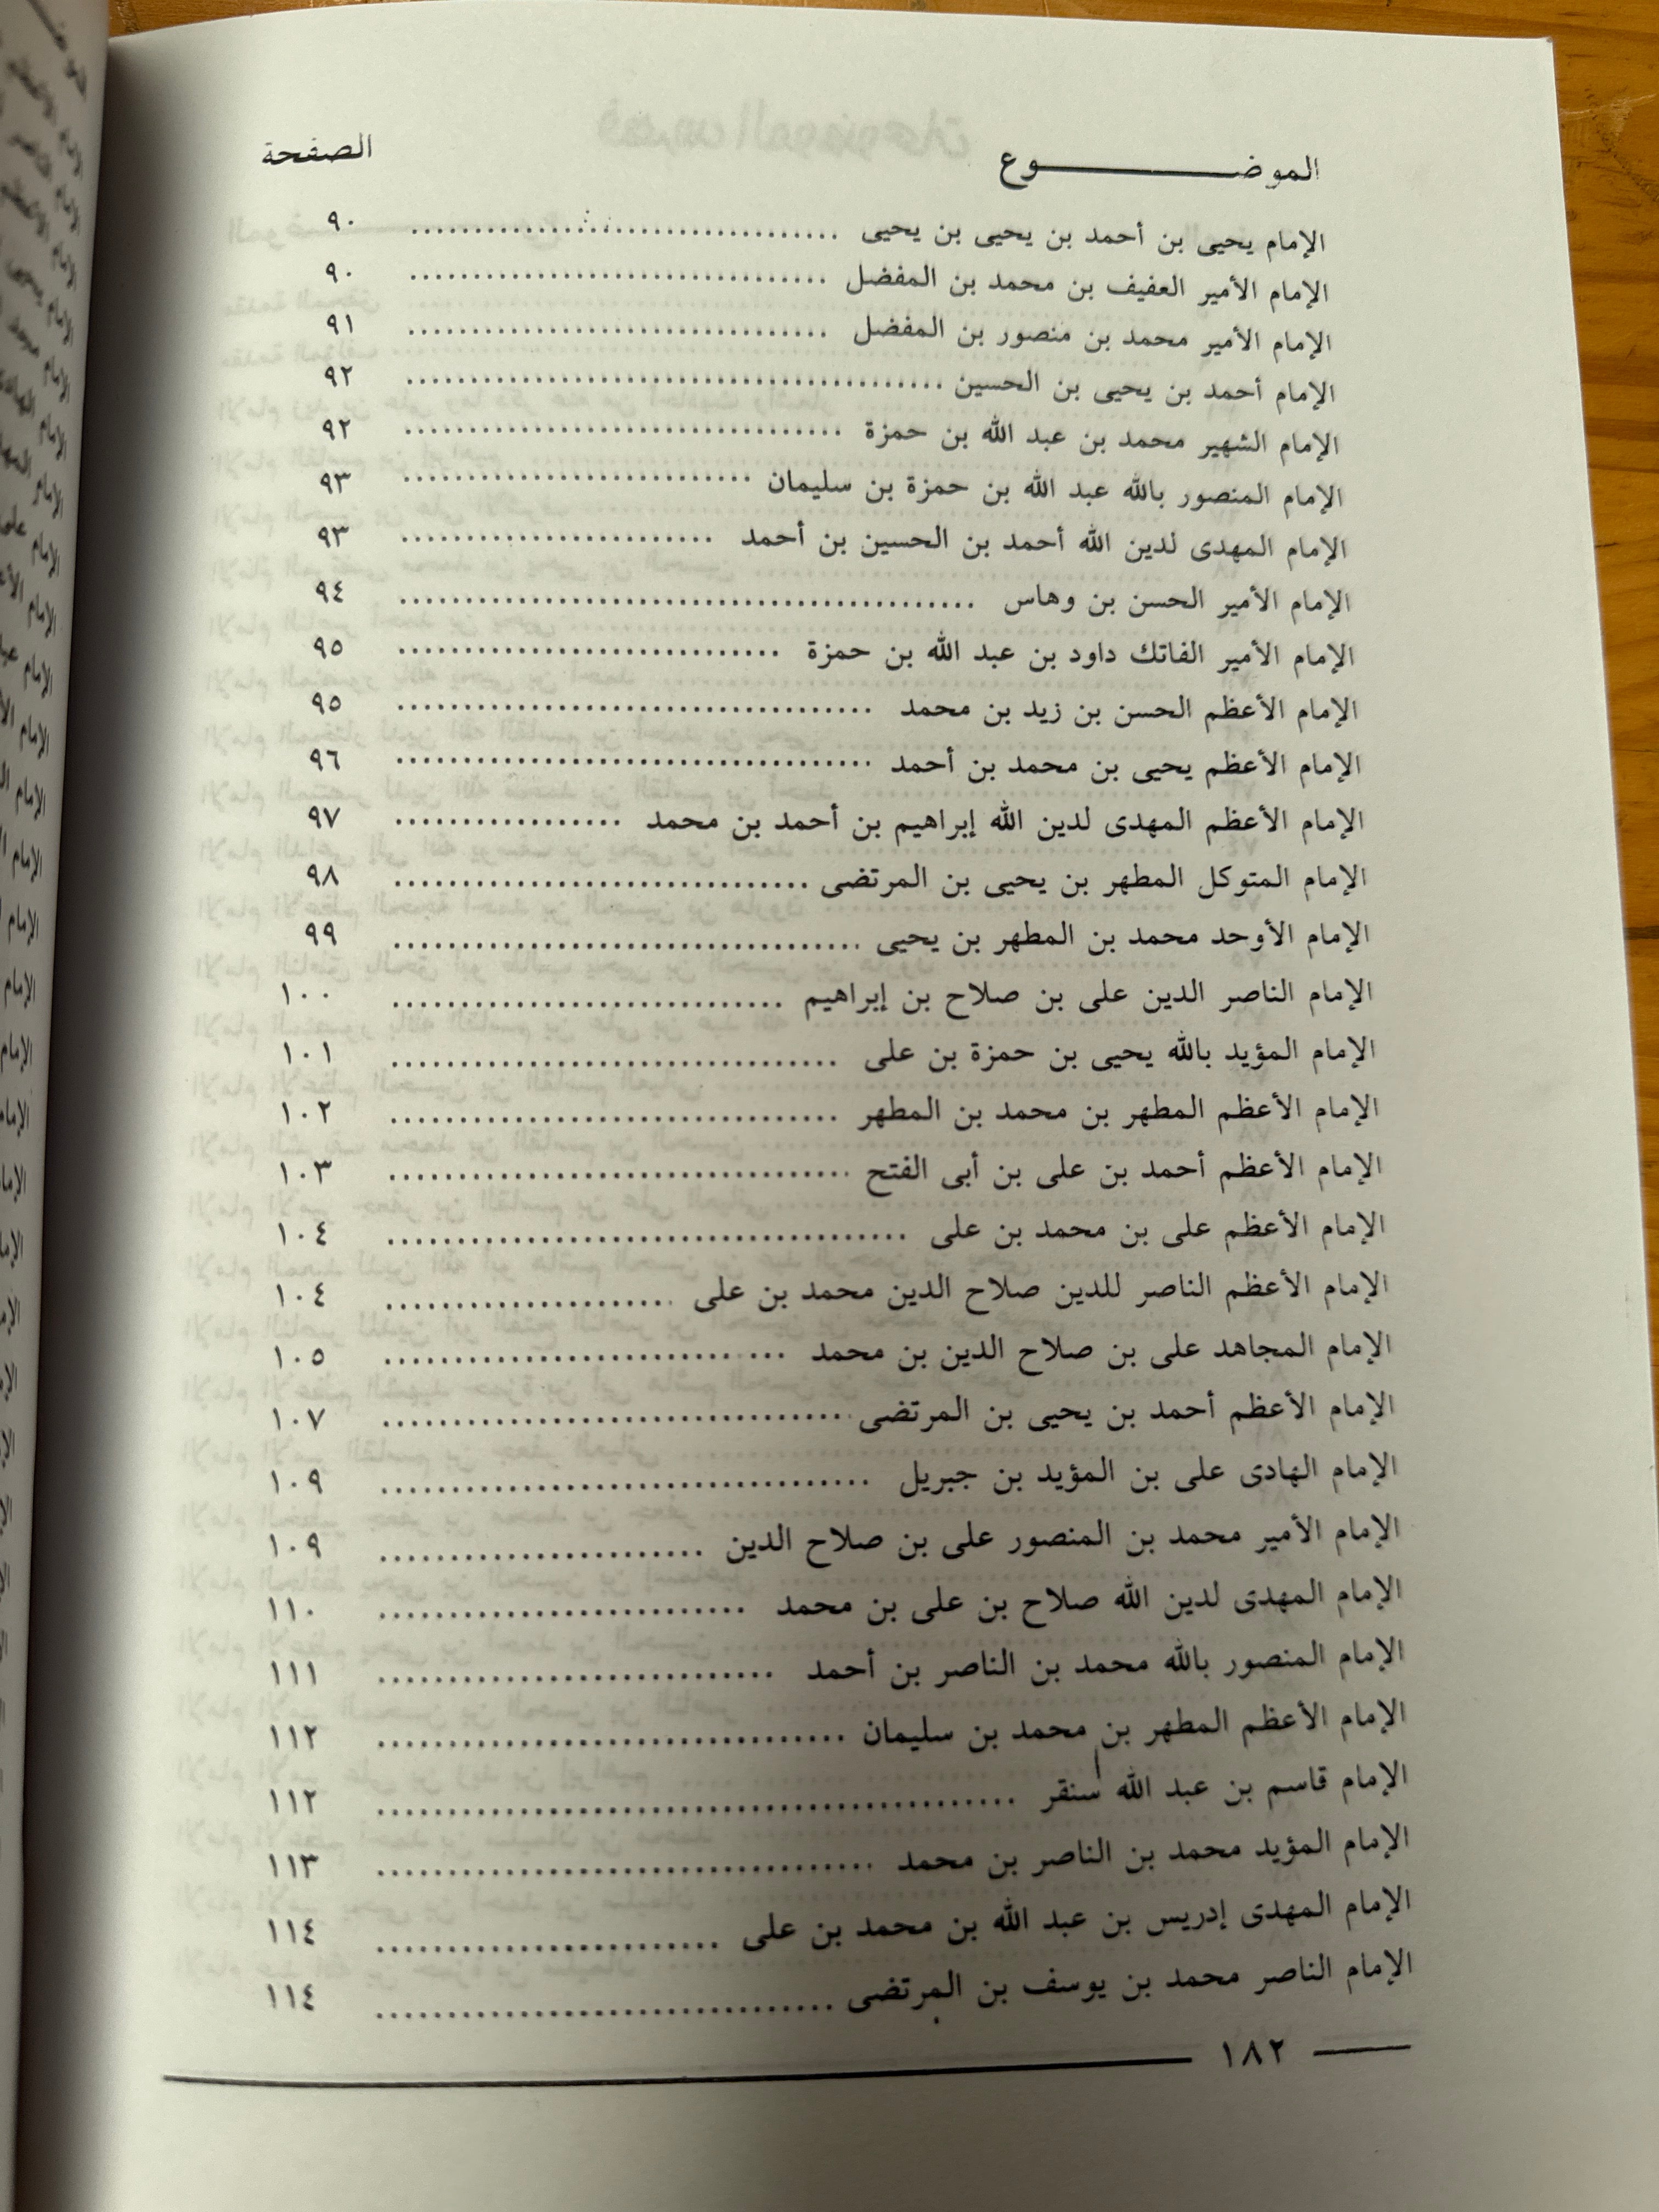 الموضـــــــوع الصفحة
الإمام يحيى بن أحمد بن يحيى بن يحيى .................................. ٩٠
الإمام الأمير العفيف بن محمد بن المفضل ................................. ٩٠
الإمام الأمير محمد بن منصور بن المفضل ................................. ٩١
الإمام أحمد بن يحيى بن الحسين .......................................... ٩٢
الإمام الشهير محمد بن عبد الله بن حمزة .................................. ٩٢
الإمام المنصور بالله عبد الله بن حمزة بن سليمان ........................... ٩٣
الإمام المهدى لدين الله أحمد بن الحسين بن أحمد ........................ ٩٣
الإمام الأمير الحسن بن وهاس ............................................ ٩٤
الإمام الأمير الفاتك داود بن عبد الله بن حمزة ............................. ٩٥
الإمام الأعظم الحسن بن زيد بن محمد .................................... ٩٥
الإمام الأعظم يحيى بن محمد بن أحمد .................................... ٩٦
الإمام الأعظم المهدى لدين الله إبراهيم بن أحمد بن محمد ................. ٩٧
الإمام المتوكل المطهر بن يحيى بن المرتضى ............................... ٩٨
الإمام الأوحد محمد بن المطهر بن يحيى ................................... ٩٩
الإمام الناصر الدين على بن صلاح بن إبراهيم ............................. ١٠٠
الإمام المؤيد بالله يحيى بن حمزة بن على ................................. ١٠١
الإمام الأعظم المطهر بن محمد بن المطهر ................................. ١٠٢
الإمام الأعظم أحمد بن على بن أبى الفتح .................................. ١٠٣
الإمام الأعظم على بن محمد بن على ...................................... ١٠٤
الإمام الأعظم الناصر للدين صلاح الدين محمد بن على ..................... ١٠٤
الإمام المجاهد على بن صلاح الدين بن محمد ............................. ١٠٥
الإمام الأعظم أحمد بن يحيى بن المرتضى .................................. ١٠٧
الإمام الهادى على بن المؤيد بن جبريل .................................... ١٠٩
الإمام الأمير محمد بن المنصور على بن صلاح الدين ....................... ١٠٩
الإمام المهدى لدين الله صلاح بن على بن محمد ........................... ١١٠
الإمام المنصور بالله محمد بن الناصر بن أحمد ............................. ١١١
الإمام الأعظم المطهر بن محمد بن سليمان .................................. ١١٢
الإمام قاسم بن عبد الله سنقر .............................................. ١١٢
الإمام المؤيد محمد بن الناصر بن محمد .................................... ١١٣
الإمام المهدى إدريس بن عبد الله بن محمد بن على ......................... ١١٤
الإمام الناصر محمد بن يوسف بن المرتضى .................................. ١١٤
١٨٢